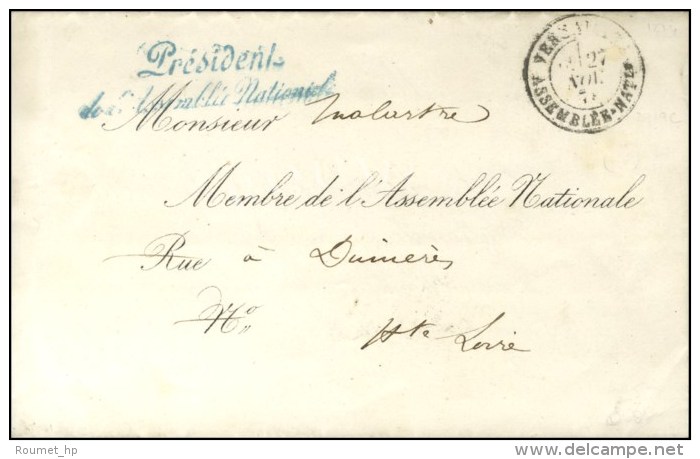 Président
de l'Assemblée Nationale
VERSAILLES
27
NOV.
ASSEMBLÉE-NATLE
Monsieur Malartre
Membre de l'Assemblée Nationale
Rue à Dunières
No
Hte Loire
Roumet_hp
delcampe.net